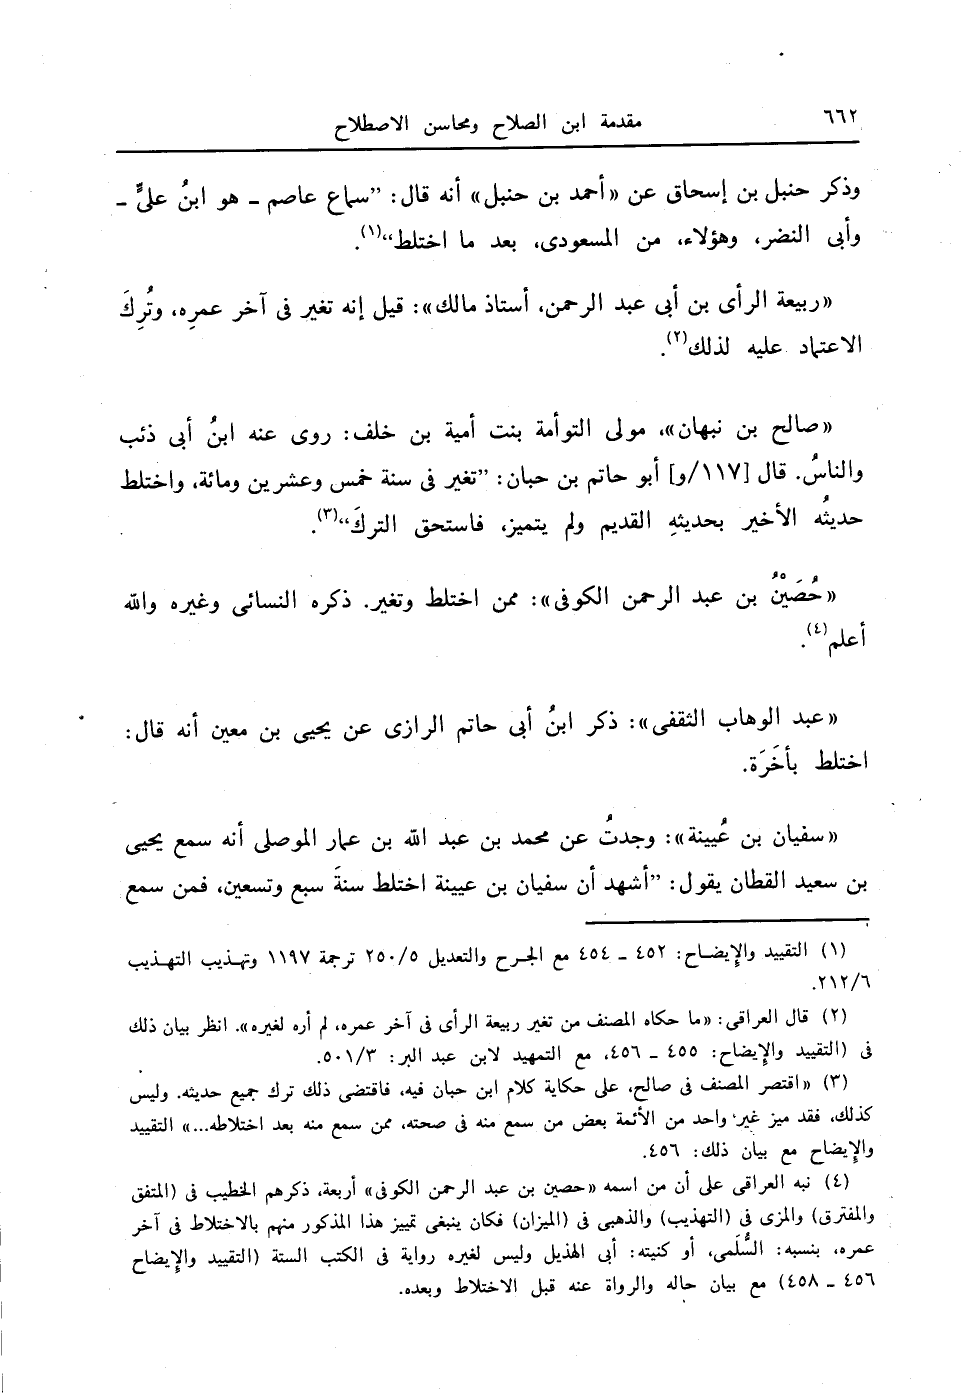 ٦٦٢
مقدمة ابن الصلاح ومحاسن الاصطلاح
وذكر حنبل بن إسحاق عن «أحمد بن حنبل» أنه قال: ”سماع عاصم ـ هو ابنُ علىٍّ ـ
وأبى النضر، وهؤلاء، من المسعودى، بعد ما اختلط“(١).
«ربيعة الرأى بن أبى عبد الرحمن، أستاذ مالك»: قيل إنه تغير فى آخر عمرِه، وتُرِكَ
الاعتماد عليه لذلك(٢).
«صالح بن نبهان»، مولى التوأمة بنت أمية بن خلف: روى عنه ابنُ أبى ذئب
والناسُ. قال [١١٧/و] أبو حاتم بن حبان: ”تغير فى سنة خمس وعشرين ومائة، واختلط
حديثُه الأخير بحديثهِ القديم ولم يتميز، فاستحق التركَ“(٣).
«حُصَيْنُ بن عبد الرحمن الكوفى»: ممن اختلط وتغير. ذكره النسائى وغيره والله
أعلم(٤).
«عبد الوهاب الثقفى»: ذكر ابنُ أبى حاتم الرازى عن يحيى بن معين أنه قال:
اختلط بأخَرَة.
«سفيان بن عُيينة»: وجدتُ عن محمد بن عبد الله بن عمار الموصلى أنه سمع يحيى
بن سعيد القطان يقول: ”أشهد أن سفيان بن عيينة اختلط سنةَ سبع وتسعين، فمن سمع
(١) التقييد والإيضاح: ٤٥٢ ـ ٤٥٤ مع الجرح والتعديل ٢٥٠/٥ ترجمة ١١٩٧ وتهذيب التهذيب
٢١٢/٦.
(٢) قال العراقى: «ما حكاه المصنف من تغير ربيعة الرأى فى آخر عمره، لم أره لغيره». انظر بيان ذلك
فى (التقييد والإيضاح: ٤٥٥ ـ ٤٥٦، مع التمهيد لابن عبد البر: ٥٠١/٣.
(٣) «اقتصر المصنف فى صالح، على حكاية كلام ابن حبان فيه، فاقتضى ذلك ترك جميع حديثه. وليس
كذلك، فقد ميز غير واحد من الأئمة بعض من سمع منه فى صحته، ممن سمع منه بعد اختلاطه...» التقييد
والإيضاح مع بيان ذلك: ٤٥٦.
(٤) نبه العراقى على أن من اسمه «حصين بن عبد الرحمن الكوفى» أربعة، ذكرهم الخطيب فى (المتفق
والمفترق) والمزى فى (التهذيب) والذهبى فى (الميزان) فكان ينبغى تمييز هذا المذكور منهم بالاختلاط فى آخر
عمره، بنسبه: السُّلَمى، أو كنيته: أبى الهذيل وليس لغيره رواية فى الكتب الستة (التقييد والإيضاح
٤٥٦ ـ ٤٥٨) مع بيان حاله والرواة عنه قبل الاختلاط وبعده.